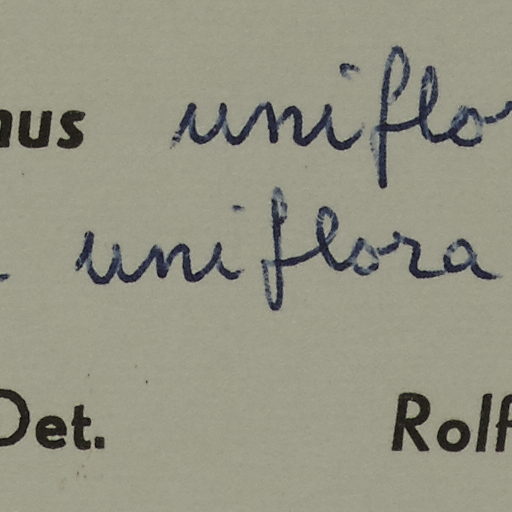 nus uniflo
uniflora
Det. Rolf